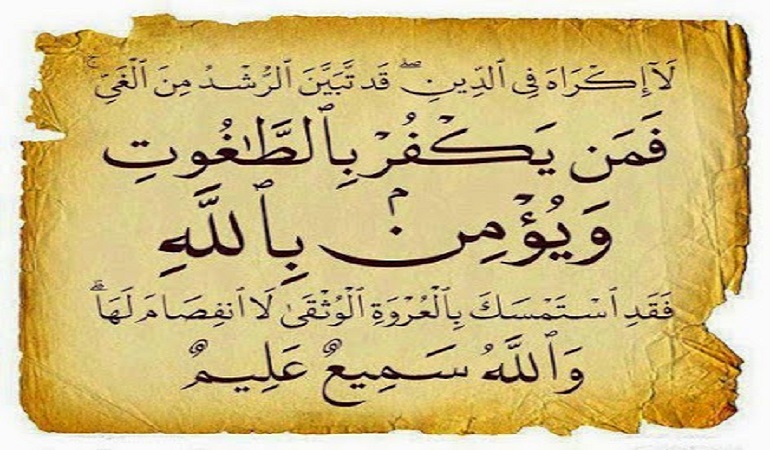 لَآ إِكْرَاهَ فِى ٱلدِّينِ ۖ قَد تَّبَيَّنَ ٱلرُّشْدُ مِنَ ٱلْغَىِّ ۚ
فَمَن يَكْفُرْ بِٱلطَّٰغُوتِ
وَيُؤْمِنۢ بِٱللَّهِ
فَقَدِ ٱسْتَمْسَكَ بِٱلْعُرْوَةِ ٱلْوُثْقَىٰ لَا ٱنفِصَامَ لَهَا ۗ
وَٱللَّهُ سَمِيعٌ عَلِيمٌ